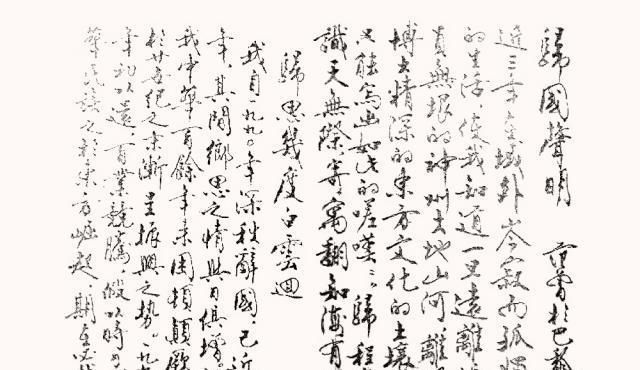 歸國聲明 范曾於巴黎
近三年在域外岑寂而孤獨
的生活，使我知道一旦遠離
無垠的神州大地山河，離
博大精深的東方文化的土壤
只能寫出如此的嗟嘆：歸程
識天無際，寄寓翻知海有
歸思幾度白雲迴
我自一九九〇年深秋辭國，已近
年，其間鄉思之情與日俱增
我中華百餘年來困頓顛厥
於廿世紀之末漸呈振興之勢。一九
年以還，百業競騰，假以時
華民族之於東方崛起，期在必